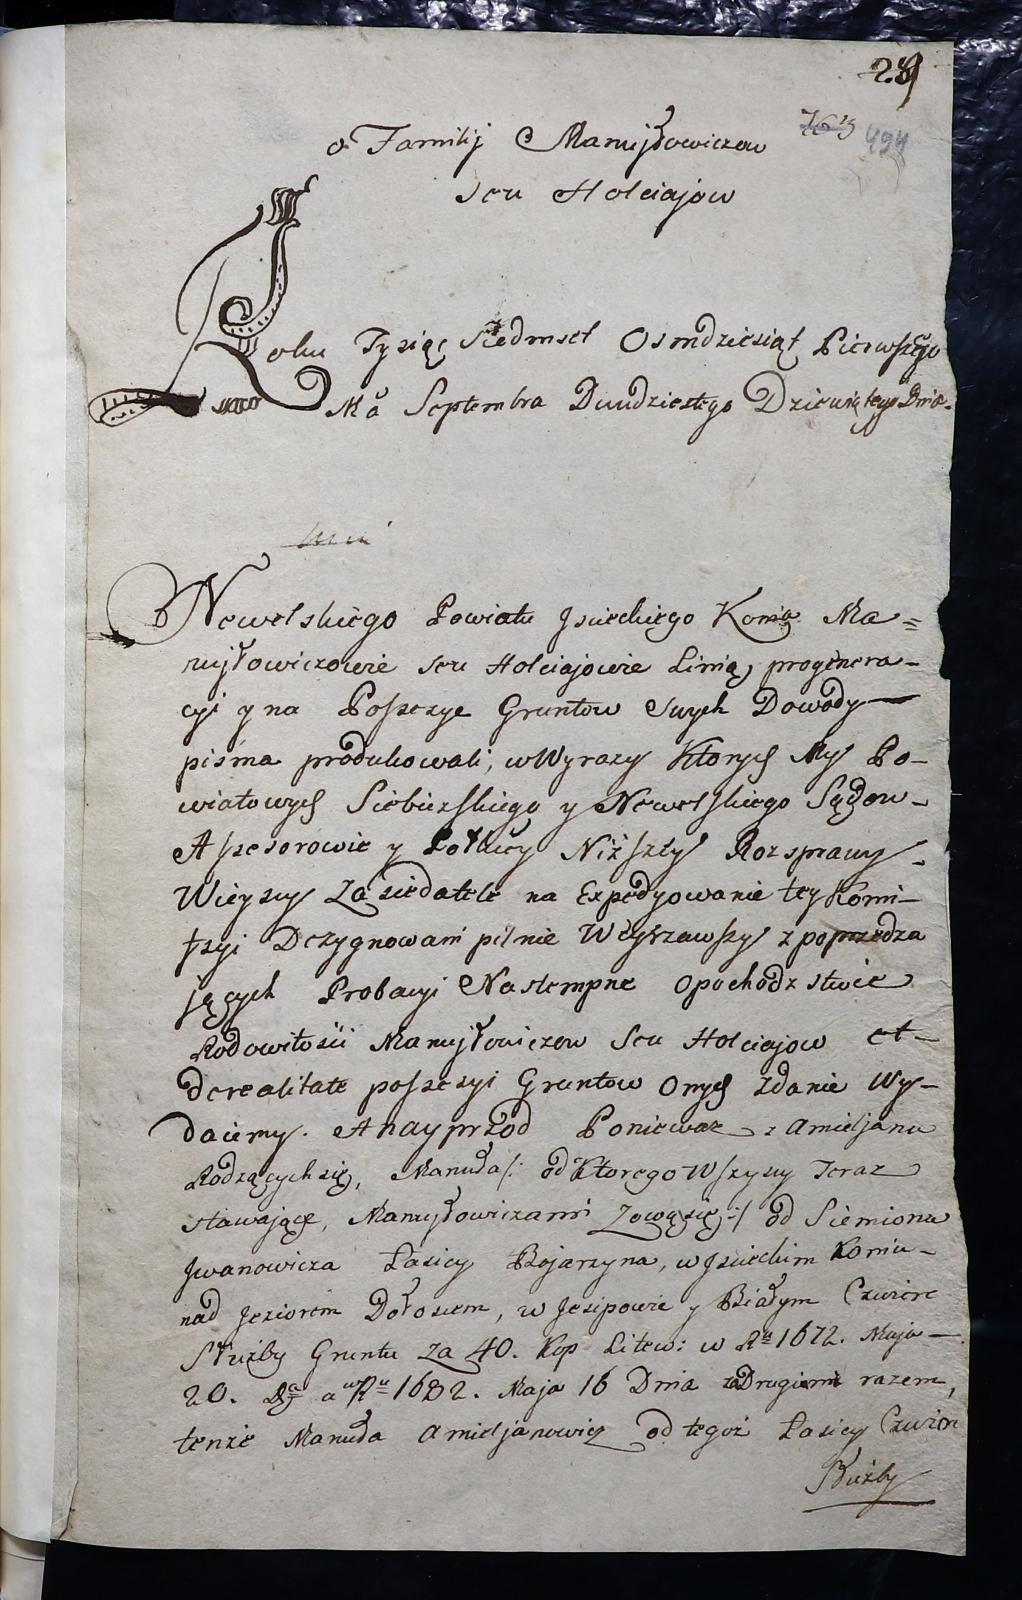 28
o Familij Manujłowiczow
494
seu Hołciajow
Roku Tysiąc Siedmset Osmdziesiąt Pierwszego
Mca Septembra Dwudziestego Dziewiątego Dnia
Newelskiego Powiatu Jsieckiego Konia Ma=
nujłowiczowie seu Hołciajowie Linią progenera-
cyi y na Possesye Gruntow Swych Dowody
pisma produkowali, w Wyrazy Ktorych My Po-
wiatowych Siebiezskiego y Newelskiego Sądow-
Assesorowie y Połney Niższey Rozprawy
Wieyscy Zasiedatele na Expedyowanie tey Komi-
ssyi Dezygnowani pilnie Weyrzawszy z poprzedza
jących Probacyi Nastempne o pochodzstwie
Rodowitości Manujłowiczow Seu Hołciajow et-
de realitate possesyi Gruntow Onych zdanie Wy-
daiemy. A nayprzod Poniewaz z Amieljana
Rodzących się, Manuła /: od Ktorego Wszyscy Teraz
stawające, Manujłowiczami Zowąsię :/ od Siemiona
Jwanowicza Łasicy Bojarzyna, w Jsieckim Koniu-
nad Jeziorem Dołosiem, w Jesipowie y Białym Czwierc
Służby Gruntu Za 40. Kop Litew: w Ru 1672. Maja-
20. Da a w Ru 1682. Maja 16 Dnia za Drugiemi razem,
tenże Manuła Amieljanowicz od tegoż Łasicy Czwierc
Służby